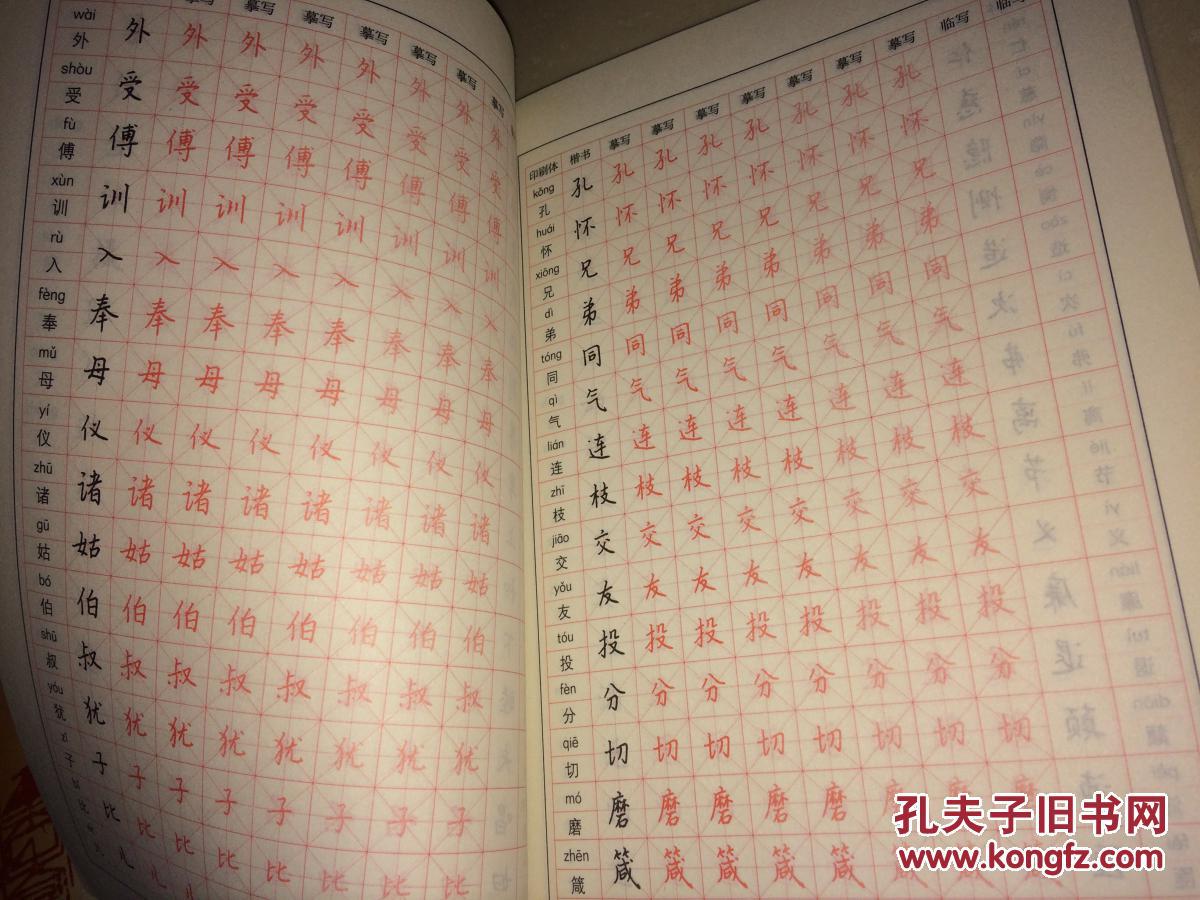 摹写 摹写 摹写 摹写 摹写 摹写
wài
外 外 外 外 外 外 外 外 外
shòu
受 受 受 受 受 受 受 受 受
fù
傅 傅 傅 傅 傅 傅 傅 傅 傅
xùn
训 训 训 训 训 训 训 训 训
rù
入 入 入 入 入 入 入 入 入
fèng
奉 奉 奉 奉 奉 奉 奉 奉 奉
mǔ
母 母 母 母 母 母 母 母 母
yí
仪 仪 仪 仪 仪 仪 仪 仪 仪
zhū
诸 诸 诸 诸 诸 诸 诸 诸 诸
gū
姑 姑 姑 姑 姑 姑 姑 姑 姑
bó
伯 伯 伯 伯 伯 伯 伯 伯 伯
shū
叔 叔 叔 叔 叔 叔 叔 叔 叔
yóu
犹 犹 犹 犹 犹 犹 犹 犹 犹
zǐ
子 子 子 子 子 子 子 子 子
比 比 比 比 比 比 比 比
儿 儿
印刷体 楷书 摹写 摹写 摹写 摹写 摹写 摹写 摹写 临写 临写
kǒng
孔 孔 孔 孔 孔 孔 孔 孔 孔
huái
怀 怀 怀 怀 怀 怀 怀 怀 怀
xiōng
兄 兄 兄 兄 兄 兄 兄 兄 兄
dì
弟 弟 弟 弟 弟 弟 弟 弟 弟
tóng
同 同 同 同 同 同 同 同 同
qì
气 气 气 气 气 气 气 气 气
lián
连 连 连 连 连 连 连 连 连
zhī
枝 枝 枝 枝 枝 枝 枝 枝 枝
jiāo
交 交 交 交 交 交 交 交 交
yǒu
友 友 友 友 友 友 友 友 友
tóu
投 投 投 投 投 投 投 投 投
fèn
分 分 分 分 分 分 分 分 分
qiē
切 切 切 切 切 切 切 切 切
mó
磨 磨 磨 磨 磨 磨 磨 磨 磨
zhēn
箴 箴 箴 箴 箴 箴
孔夫子旧书网
www.kongfz.com